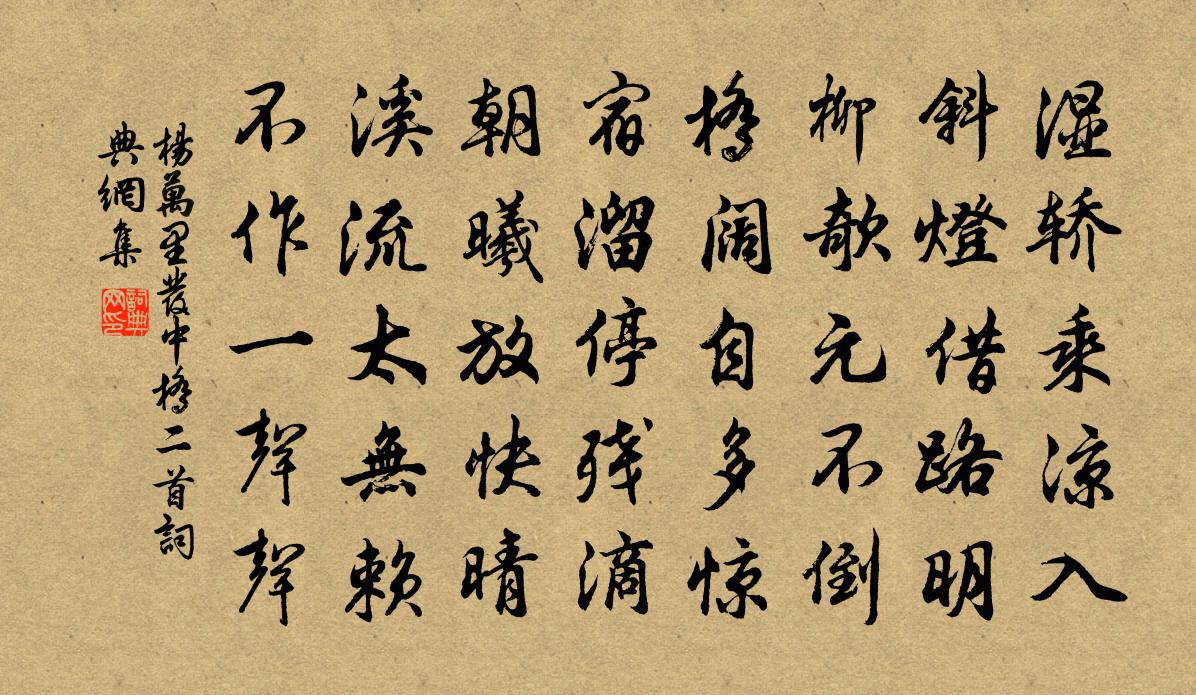 湿轿乘凉入
斜燈借路明
柳欹元不倒
橋阔自多惊
宿溜停残滴
朝曦放快晴
溪流太無賴
不作一聲聲
楊萬里發中橋二首詞
典網集
詞典
网印